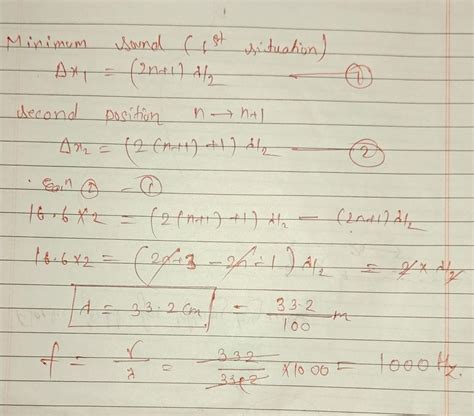 Minimum sound (1st situation)
Δx₁ = (2n+1) λ/2 ——— ①
second position n → n+1
Δx₂ = (2(n+1)+1) λ/2 ——— ②
Eqn ② - ①
16.6×2 = (2(n+1)+1) λ/2 - (2n+1) λ/2
16.6×2 = (2n+3 - 2n-1) λ/2 = 2 × λ/2
λ = 33.2 cm = 33.2/100 m
f = v/λ = 332/33.2 × 100 = 1000 Hz.